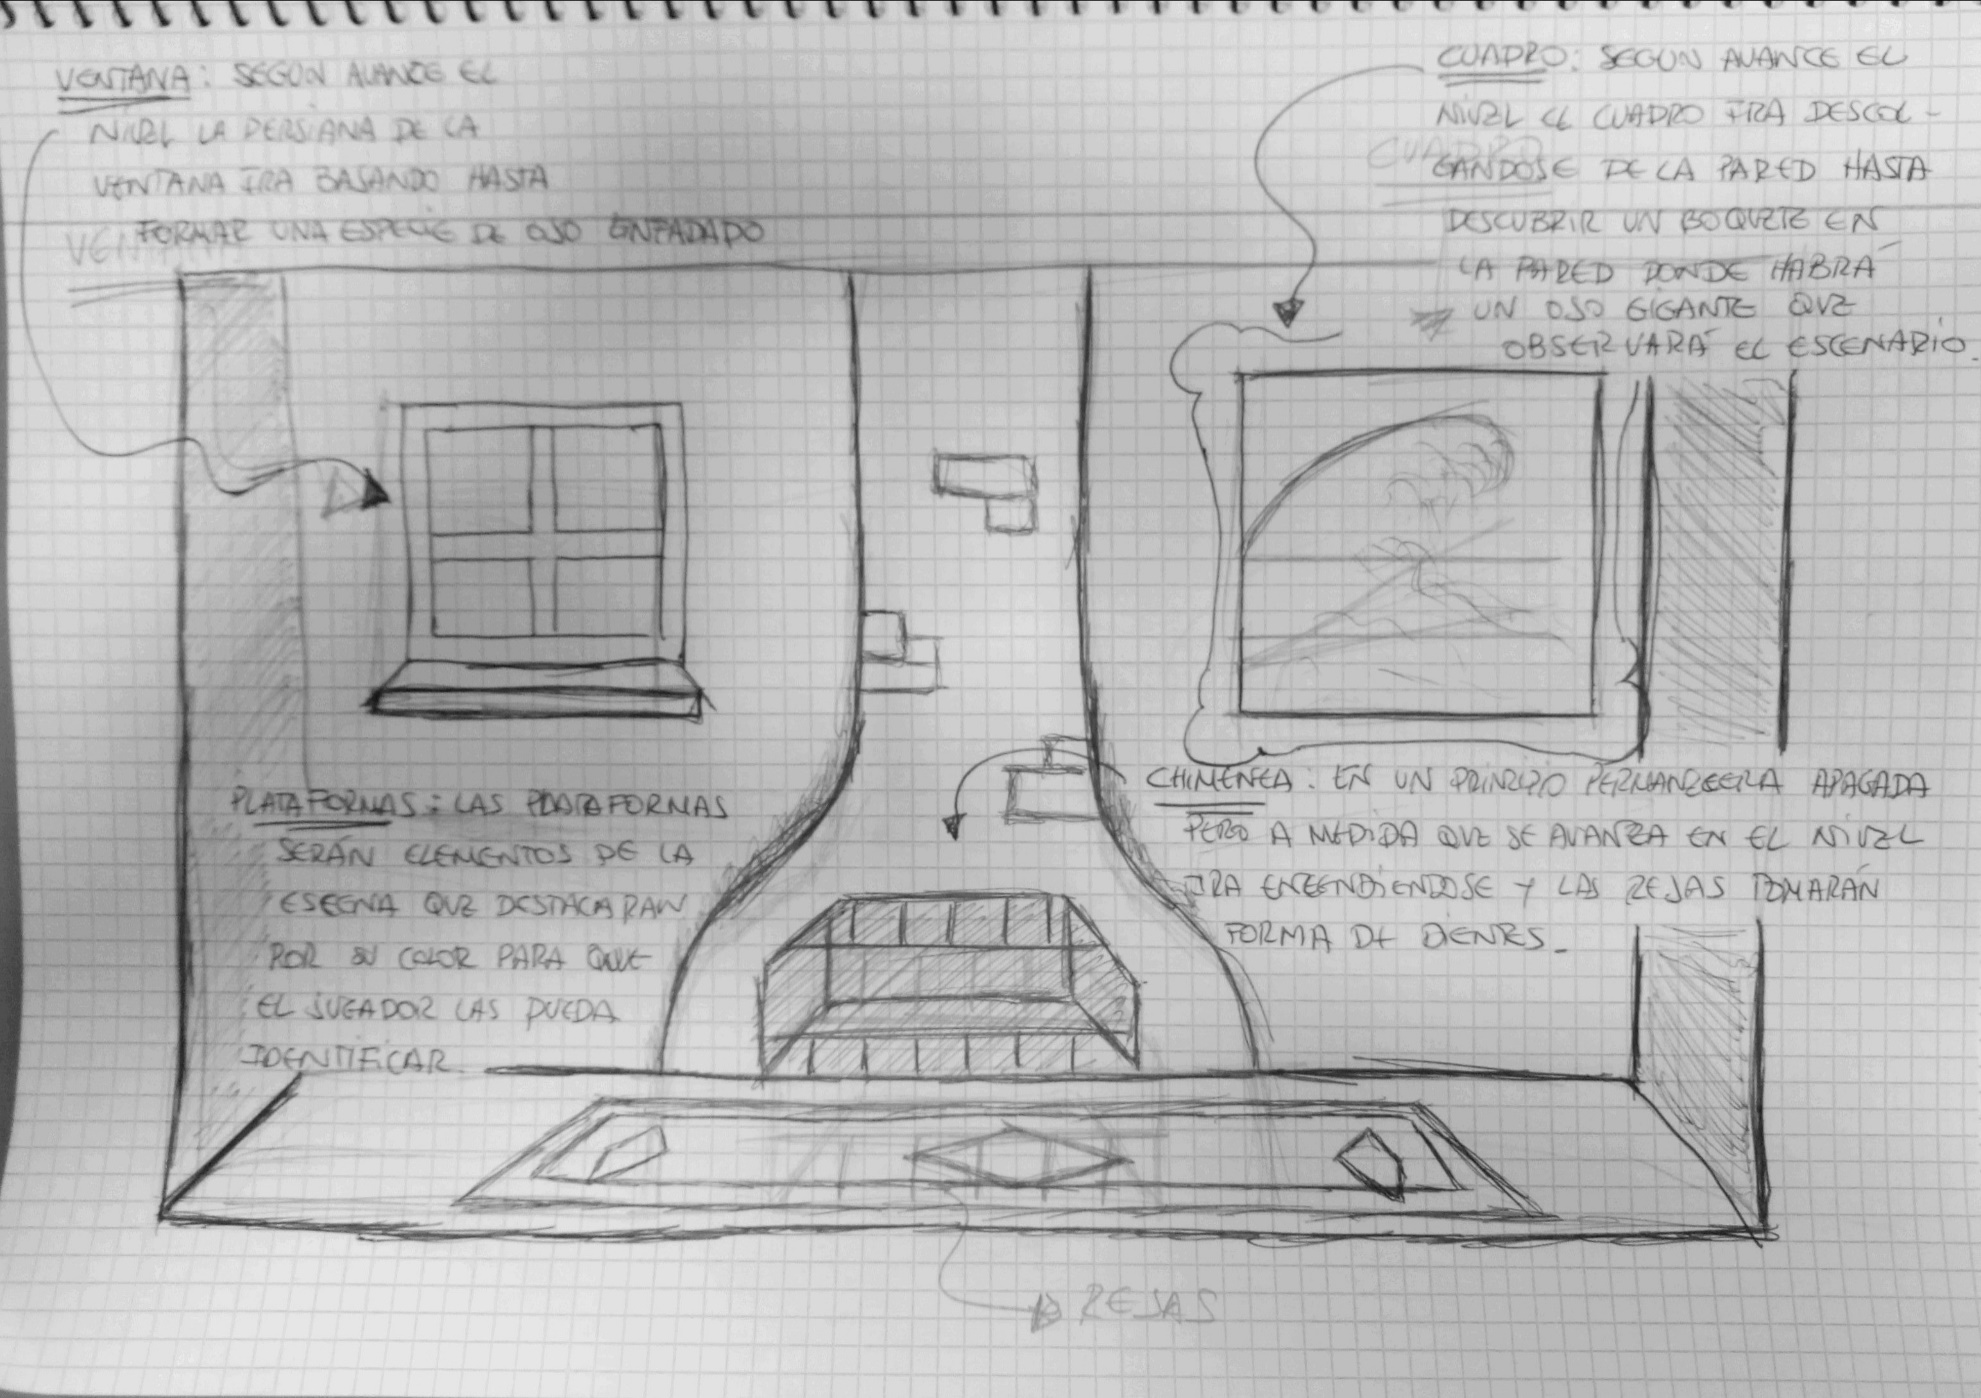 VENTANA: SEGUN AVANCE EL
NIVEL LA PERSIANA DE LA
VENTANA IRA BAJANDO HASTA
FORMAR UNA ESPECIE DE OJO ENFADADO
CUADRO: SEGUN AVANCE EL
NIVEL EL CUADRO IRA DESCOL-
GANDOSE DE LA PARED HASTA
DESCUBRIR UN BOQUETE EN
LA PARED DONDE HABRÁ
UN OJO GIGANTE QUE
OBSERVARÁ EL ESCENARIO.
CUADRO
VENTANA
PLATAFORMAS: LAS PLATAFORMAS
SERÁN ELEMENTOS DE LA
ESCENA QUE DESTACARAN
POR SU COLOR PARA QUE
EL JUGADOR LAS PUEDA
IDENTIFICAR.
CHIMENEA: EN UN PRINCIPIO PERMANECERA APAGADA
PERO A MEDIDA QUE SE AVANZA EN EL NIVEL
IRA ENCENDIENDOSE Y LAS REJAS TOMARÁN
FORMA DE DIENTES.
REJAS